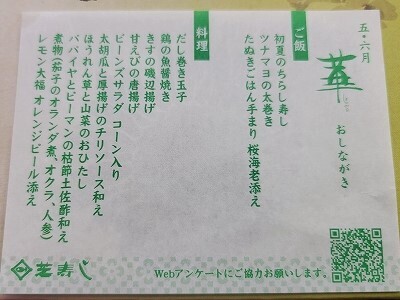 五・六月
華
おしながき
ご飯
初夏のちらし寿し
ツナマヨの太巻き
たぬきごはん手まり 桜海老添え
料理
だし巻き玉子
鶏の魚醤焼き
きすの磯辺揚げ
甘えびの唐揚げ
ビーンズサラダ コーン入り
太胡瓜と厚揚げのチリソース和え
ほうれん草と山菜のおひたし
パパイヤとピーマンの枯節土佐酢和え
煮物(茄子のオランダ煮、オクラ、人参)
レモン大福 オレンジピール添え
芝寿し
Webアンケートにご協力お願いします。